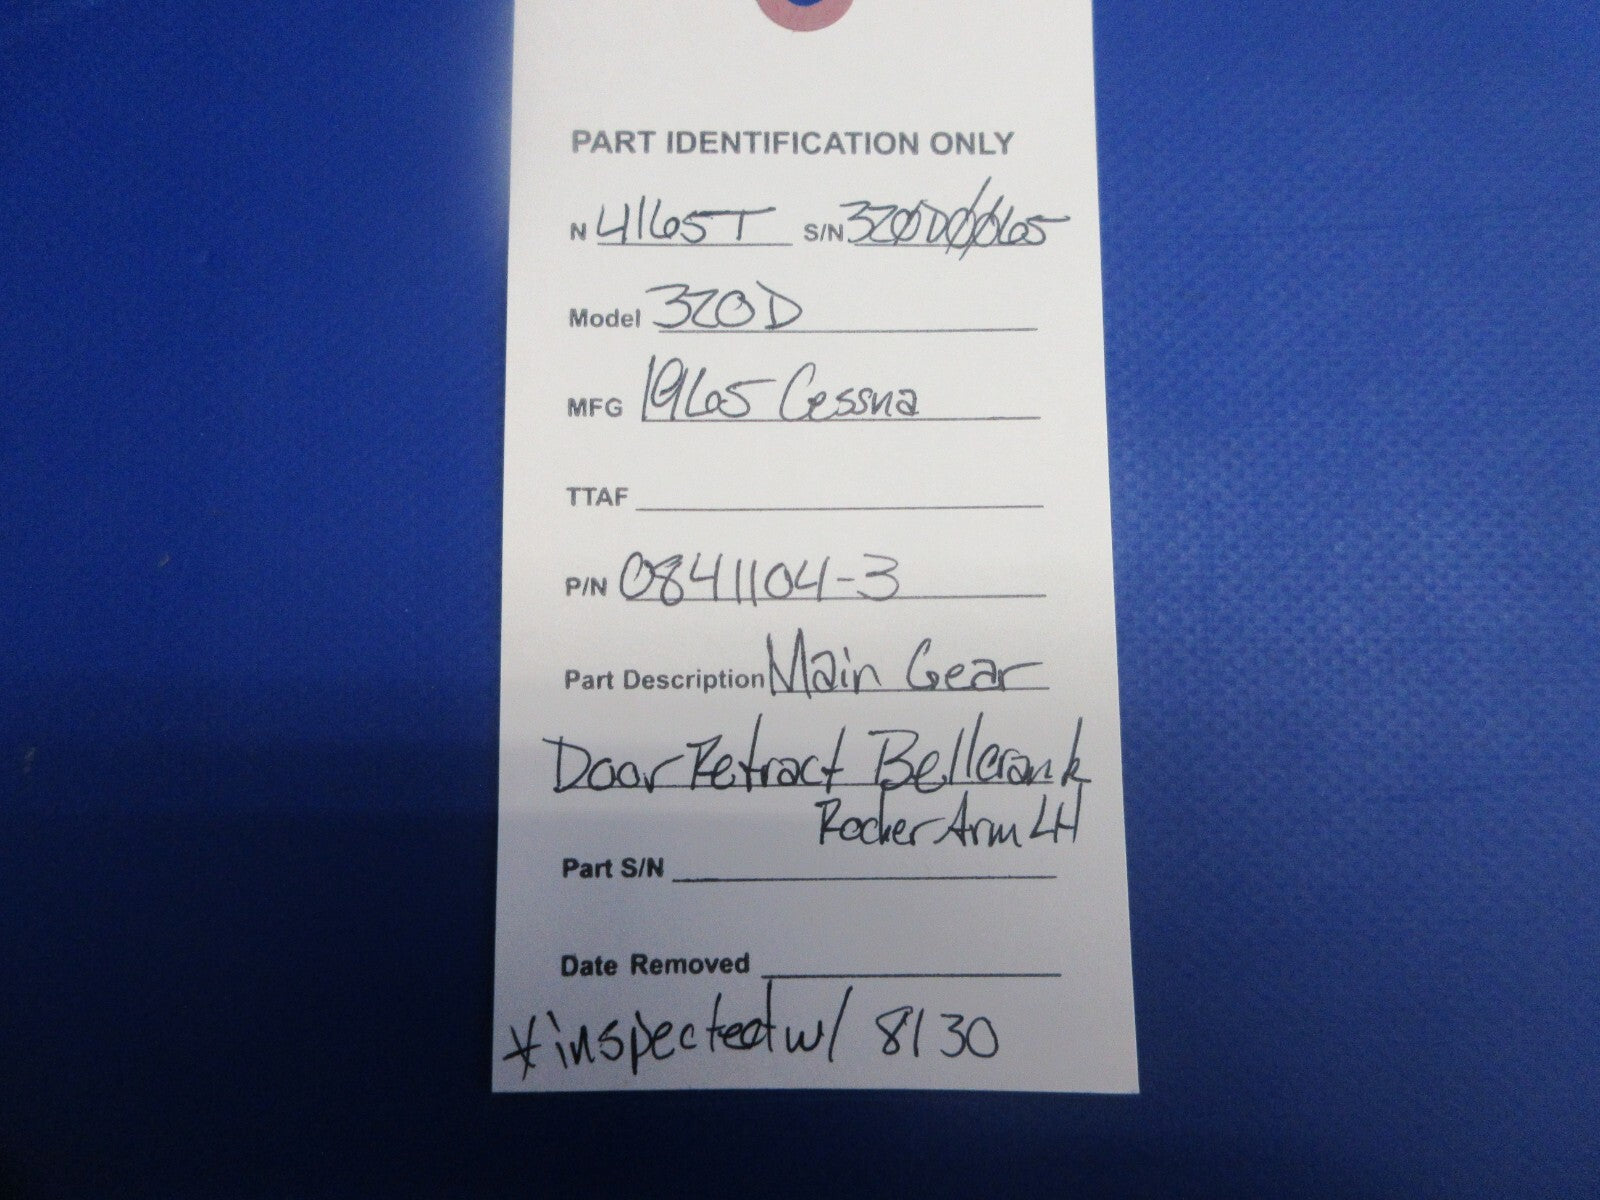 PART IDENTIFICATION ONLY
N 4165T S/N 320D0065
Model 320D
MFG 1965 Cessna
TTAF
P/N 0841104-3
Part Description Main Gear
Door Retract Bellcrank
Rocker Arm LH
Part S/N
Date Removed
*inspected w/ 8130